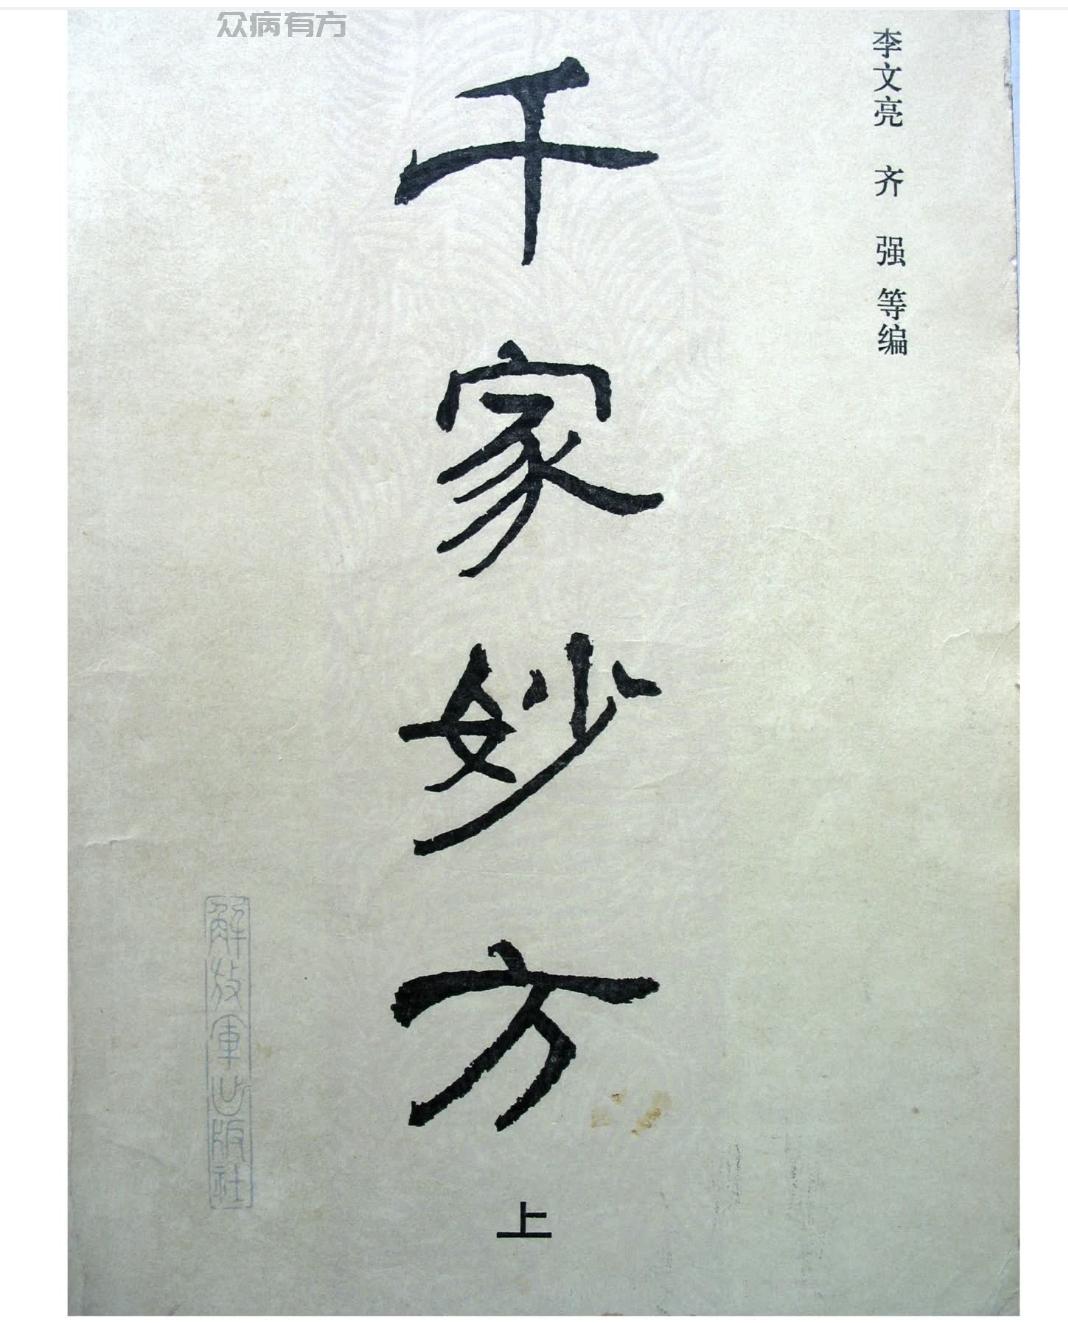 众病有方
李文亮 齐 强 等编
千家妙方
上
解放軍出版社